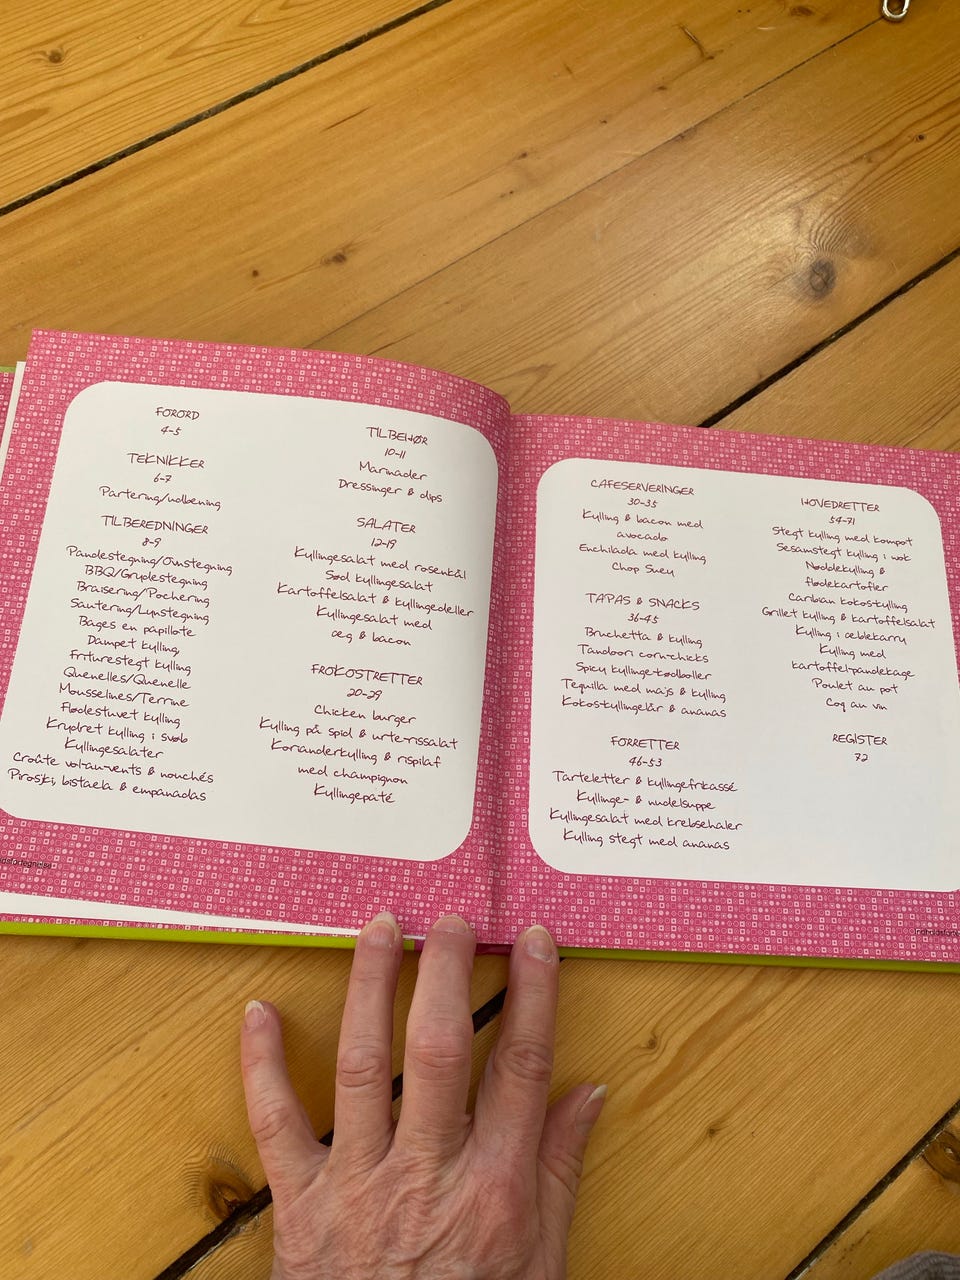 FORORD
4-5
TEKNIKKER
6-7
Partering/udbening
TILBEREDNINGER
8-9
Pandestegning/Ovnstegning
BBQ/Grydestegning
Braisering/Pochering
Sautering/Lynstegning
Bages en papillote
Dampet kylling
Friturestegt kylling
Quenelles/Quenelle
Mousselines/Terrine
Flødestuvet kylling
Krydret kylling i svøb
Kyllingesalater
Croûte vol-au-vents & nouchés
Piroski, bistaela & empanadas
TILBEHØR
10-11
Marinader
Dressinger & dips
SALATER
12-19
Kyllingesalat med rosenkål
Sød kyllingesalat
Kartoffelsalat & kyllingedeller
Kyllingesalat med
æg & bacon
FROKOSTRETTER
20-29
Chicken burger
Kylling på spid & urte-rissalat
Korianderkylling & rispilaf
med champignon
Kyllingepaté
CAFESERVERINGER
30-35
Kylling & bacon med
avocado
Enchilada med kylling
Chop Suey
TAPAS & SNACKS
36-45
Bruchetta & kylling
Tandoori corn-chicks
Spicy kyllinge-kødboller
Tequilla med majs & kylling
Kokos-kyllingelår & ananas
FORRETTER
46-53
Tarteletter & kyllingefrikassé
Kyllinge- & nudelsuppe
Kyllingesalat med krebsehaler
Kylling stegt med ananas
HOVEDRETTER
54-71
Stegt kylling med kompot
Sesamstegt kylling i wok
Nøddekylling &
flødekartofler
Caribian kokoskylling
Grillet kylling & kartoffelsalat
Kylling i æblekarry
Kylling med
kartoffel-pandekage
Poulet au pot
Coq au vin
REGISTER
72